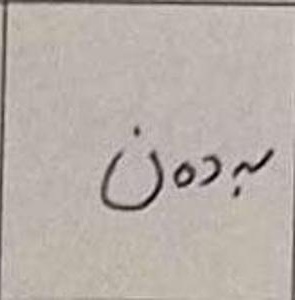 بەدەن